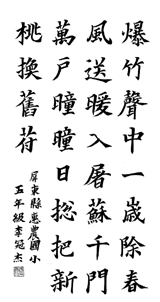 爆竹聲中一歲除春
風送暖入屠蘇千門
萬戶曈曈日捴把新
桃換舊符
屏東縣惠農國小
五年級李冠杰